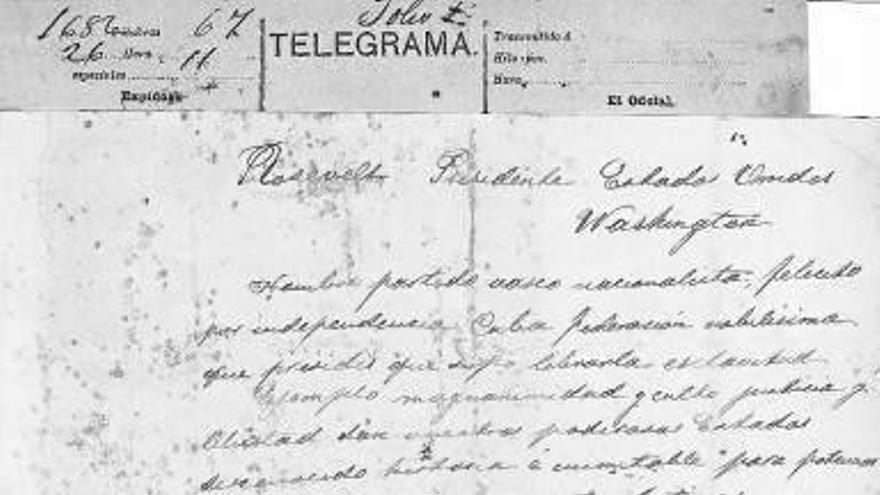 1682 67
26 Hora 11
especiales
Expídase
TELEGRAMA.
Transmitido á
Hilo
Hora
El Oficial,
Rosevelt Presidente Estados Unidos
Washington
Nombre partido vasco nacionalista, felicito
por independencia Cuba federación nobilísima
que presidís que supo librarla esclavitud
Ejemplo magnanimidad y culto justicia y
libertad dan vuestros poderosos Estados
desconocido historia é inimitable para potencias